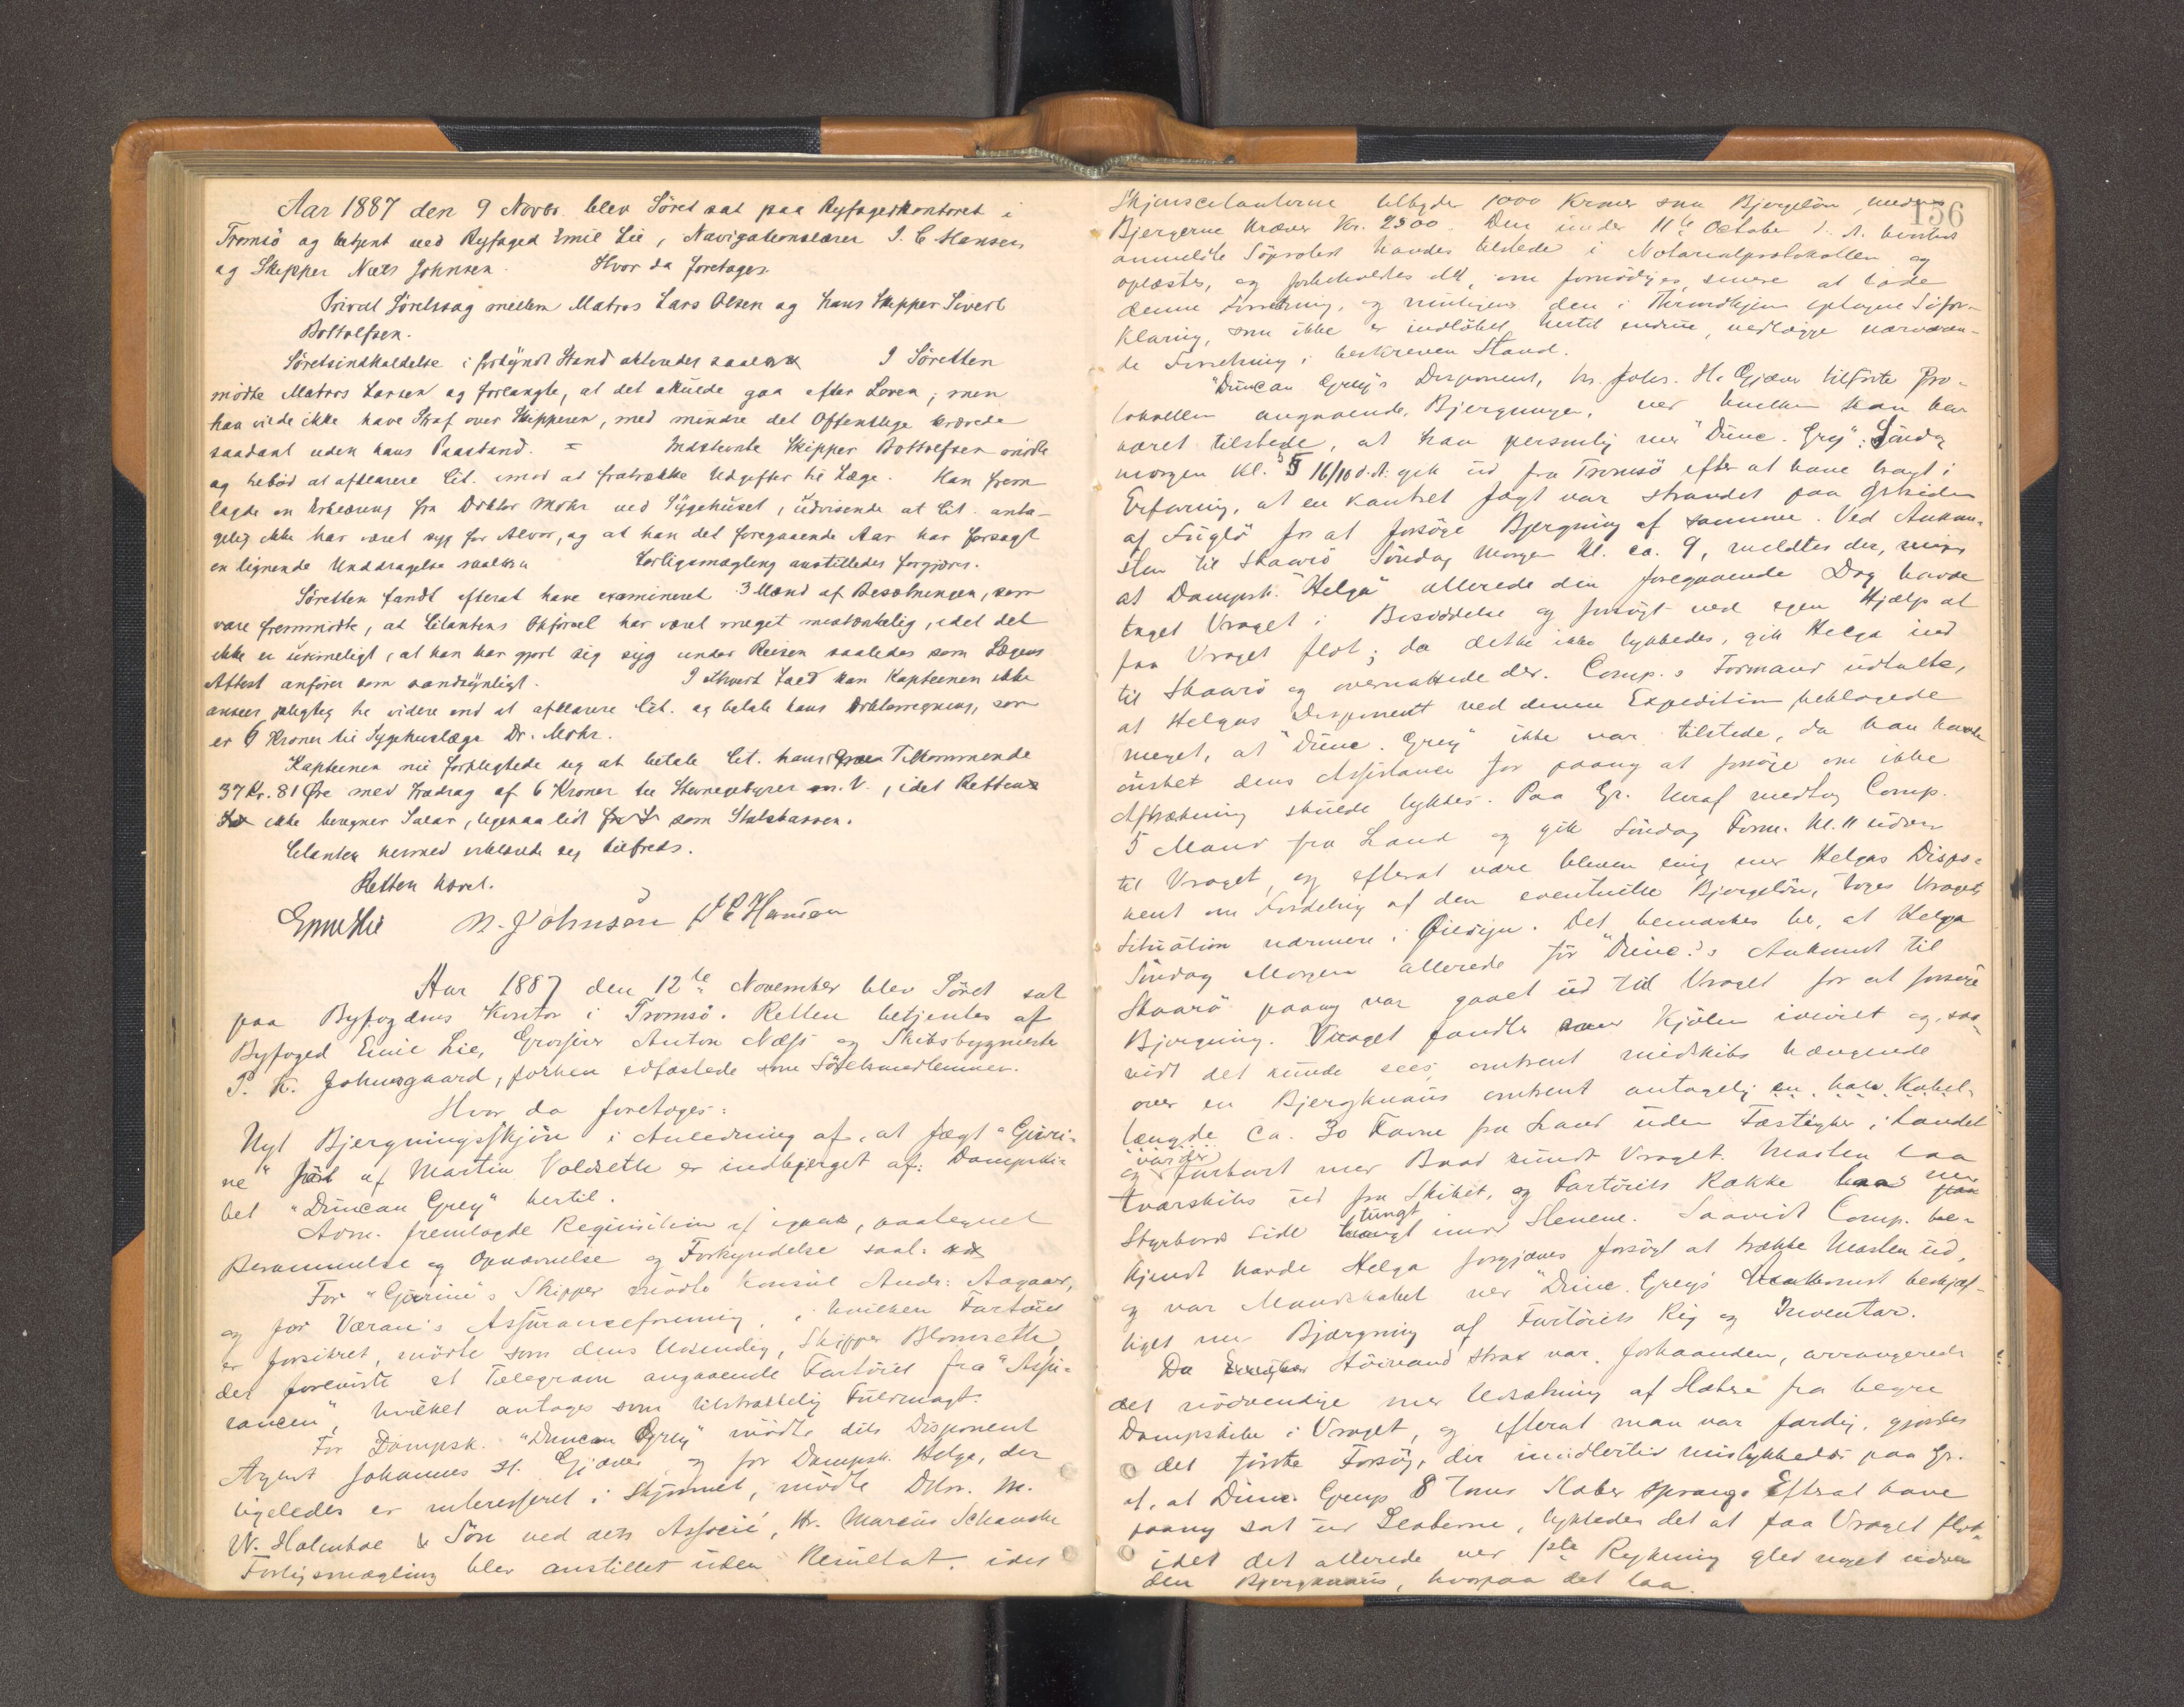 Aar 1887 den 9 Novbr. blev Söret sat paa Byfogedkontoret i
Tromsö og betjent ved Byfoged Emil Lie, Navigationslærer J. C. Hansen
og Skipper Niels Johnsen. Hvor da foretoges
Privat Söretssag mellem Matros Lars Olsen og hans Skipper Sivert
Bottolfsen.
Söretsindkaldelse i forkyndt Stand aktredes saal.
I Söretten
mödte Matros Larsen og forlangte, at det skulde gaa efter Loven, men
han vilde ikke have Straf over Skipperen, med mindre det Offentlige krævede
saadant uden hans Paastand. = Indstevnte Skipper Bottolfsen mödte
og tilböd at afklarere Cit. imod at fratrække Udgifter til Læge. Han frem
lagde en Erklæring fra Doktor Mohr ved Sygehuset, udvisende at Cit. anta-
gelig ikke har været syg for Alvor, og at han det foregaaende Aar har forsøgt
en lignende Unddragelse saal.
Forligsmægling anstilledes forgjæves.
Söretten fandt efterat have examineret 3 Mænd af Besætningen, som
vare fremmödte, at Citantens Opførsel har været meget mistænkelig, idet det
ikke er urimeligt, at han har gjort sig syg under Reisen saaledes som Lægens
Attest anförer som sandsynligt. I ethvert Fald kan Kapteinen ikke
ansees pligtig til videre end at afklarere Cit. og betale hans Doktorregning, som
er 6 Kroner til Sygehuslæge Dr. Mohr.
Kapteinen nu forpligtede sig at betale Cit. hans Tilkommende
37 Kr. 81 Øre med Fradrag af 6 Kroner til Stevnegebyrer m. V., idet Retten
ikke beregner Salær, ligesaa lidt som Statskassen.
Citanten hermed erklærede sig tilfreds.
Retten hævet.
Emil Lie N. Johnsen J C Hansen
Aar 1887 den 12te November blev Söret sat
paa Byfogdens Kontor i Tromsö. Retten betjentes af
Byfoged Emil Lie, Grosserer Anton Næss og Skibsbygmester
P. K. Johnsgaard, forhen edfæstede som Söretsmedlemmer.
Hvor da foretoges:
Nyt Bjergningsskjön i Anledning af, at Jægt "Guri-
ne" fört af Martin Voldseth er indbjerget af Dampski-
bet "Duncan Grey" hertil.
Adm. fremlagde Requisition af igaar, paategnet
Berammelse og Opnævnelse og Forkyndelse saal:
For "Gurine"s Skipper mödte Konsul Andr: Aagaard,
og for Væran's Assuranceforening, i hvilken Fartöiet
er forsikret, mödte som dens Udsendig, Skipper Blomseth,
der foreviste et Telegram angaaende Fartöiet fra "Assu-
rancen", hvilket antoges som tilstrækkelig Fuldmagt.
For Dampsk. "Duncan Grey" mödte dets Disponent
Agent Johannes H. Gjæver og for Dampsk. Helga, der
ligeledes er interesseret i Skjönnet, mödte DHrr. M.
W. Holmboe & Sön ved dets Associé, Hr. Marcus Schanche
Forligsmægling blev anstillet uden Resultat, idet
156
Skjönscitanterne tilbyder 1000 Kroner som Bjergelön, medens
Bjergerne kræver Kr. 2500. Den under 11te October d. A.
anmeldte Söprotest havdes tilstede i Notarialprotokollen og
oplæstes, og forbeholdtes det, om fornödiges, senere at lade
denne Forretning, og muligens den i Throndhjem optagne Söfor-
klaring, som ikke er indløbet hertil endnu, vedlægge nærværen-
de Forretning i beskreven Stand.
"Duncan Grey's Disponent, Hr. Johs. H. Gjæver tilförte Pro-
tokollen angaaende Bjergningen, ved hvilken han har
været tilstede, at han personlig med "Dunc. Grey" Söndag
morgen Kl. 5 16/10 d. A. gik ud fra Tromsö efter at have bragt i
Erfaring, at en kantret Jægt var strandet paa Ostsiden
af Fuglö for at forsöge Bjergning af samme. Ved Ankom-
sten til Skaarö Söndag Morgen Kl. ca. 9, meldtes der,
at Dampsk. "Helga" allerede den foregaaende Dag havde
taget Vraget i Besiddelse og forsögt ved egen Hjælp at
faa Vraget flot; da dette ikke lykkedes, gik Helga ind
til Skaarö og overnattede der. Comp.s Formand udtalte,
at Helgas Disponent ved denne Expedition beklagede
meget, at "Dunc. Grey" ikke var tilstede, da han havde
önsket dens Assistance for paany at forsöge om ikke
Aftrækning skulde lykkes. Paa Gr. heraf medtog Comp.
5 Mand fra Land og gik Söndag Form. Kl. 11 udover
til Vraget, og efterat være bleven enig med Helgas Dispo-
nent om Fordeling af den eventuelle Bjergelön, toges Vragets
Situation nærmere i Öiesyn. Det bemærkes bl, at Helga
Söndag Morgen allerede för "Dunc."s Ankomst til
Skaarö paany var gaaet ud til Vraget for at forsöge
Bjergning. Vraget fandtes med Kjölen iveiret og, saa-
vidt det kunde sees, omtrent midtskibs hængende
over en Bjergknaus omtrent antagelig en halv Kabel-
længde ca. 30 Favne fra Land uden Fæstigher i Landet
og var der farbart med Baad rundt Vraget. Masten laa
tværskibs ud fra Skibet, og Fartöiets Række laa med
Styrbords Side tungt imod Stenene. Saavidt Comp. be-
kjendt havde Helga forgjæves forsögt at trække Masten ud,
og var Mandskabet ved "Dunc. Greys Ankomst beskjæf-
tiget med Bjærgning af Fartöiets Rig og Inventar.
Da Höivand strax var forhaanden, arrangeredes
det nödvendige med Udsætning af Slæbere fra begge
Dampskibe i Vraget, og efterat man var færdig, gjordes
det förste Forsög, der imidlertid mislykkedes paa Gr.
af, at Dunc. Greys 8 Toms Slaber sprang. Efterat have
paany sat ud Slæberne, lykkedes det at faa Vraget flot,
idet det allerede ved 1ste Rykning gled noget udover
den Bjergknaus, hvorpaa det laa.